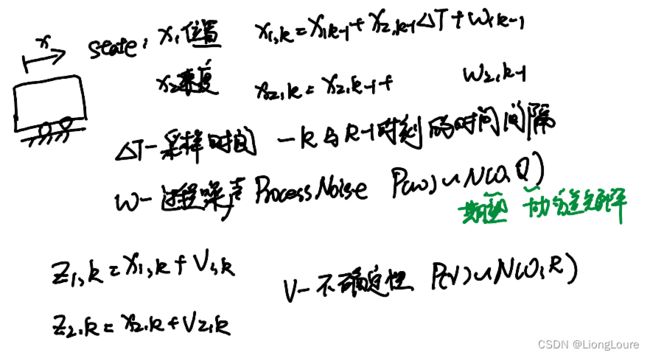 x
state: x₁位置 x₁,k = x₁,k-1 + x₂,k-1 ΔT + w₁,k-1
x₂速度 x₂,k = x₂,k-1 + w₂,k-1
ΔT-采样时间 — k与k-1时刻的时间间隔
w-过程噪声 Process Noise P(w)~N(0,Q)
期望 协方差矩阵
Z₁,k = x₁,k + V₁,k
V-不确定性 P(V)~N(0,R)
Z₂,k = x₂,k + V₂,k
CSDN @LiongLoure